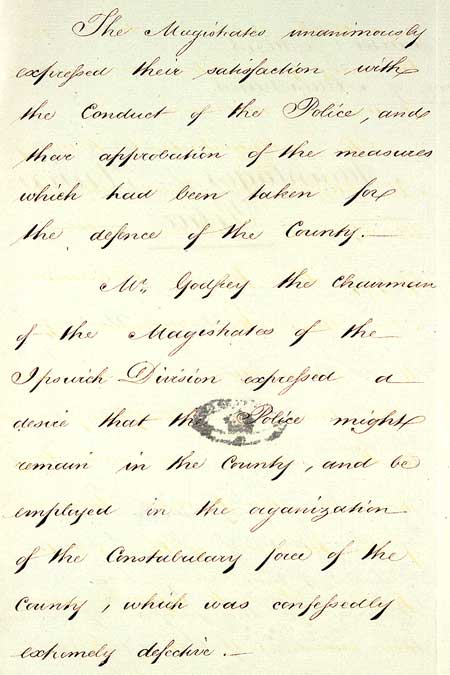 The Magistrates unanimously
expressed their satisfaction with
the Conduct of the Police, and
their approbation of the measures
which had been taken for
the defence of the County. —
Mr. Godfrey the Chairman
of the Magistrates of the
Ipswich Division expressed a
desire that the Police might
remain in the County, and be
employed in the organization
of the Constabulary force of the
County, which was confessedly
extremely defective. —